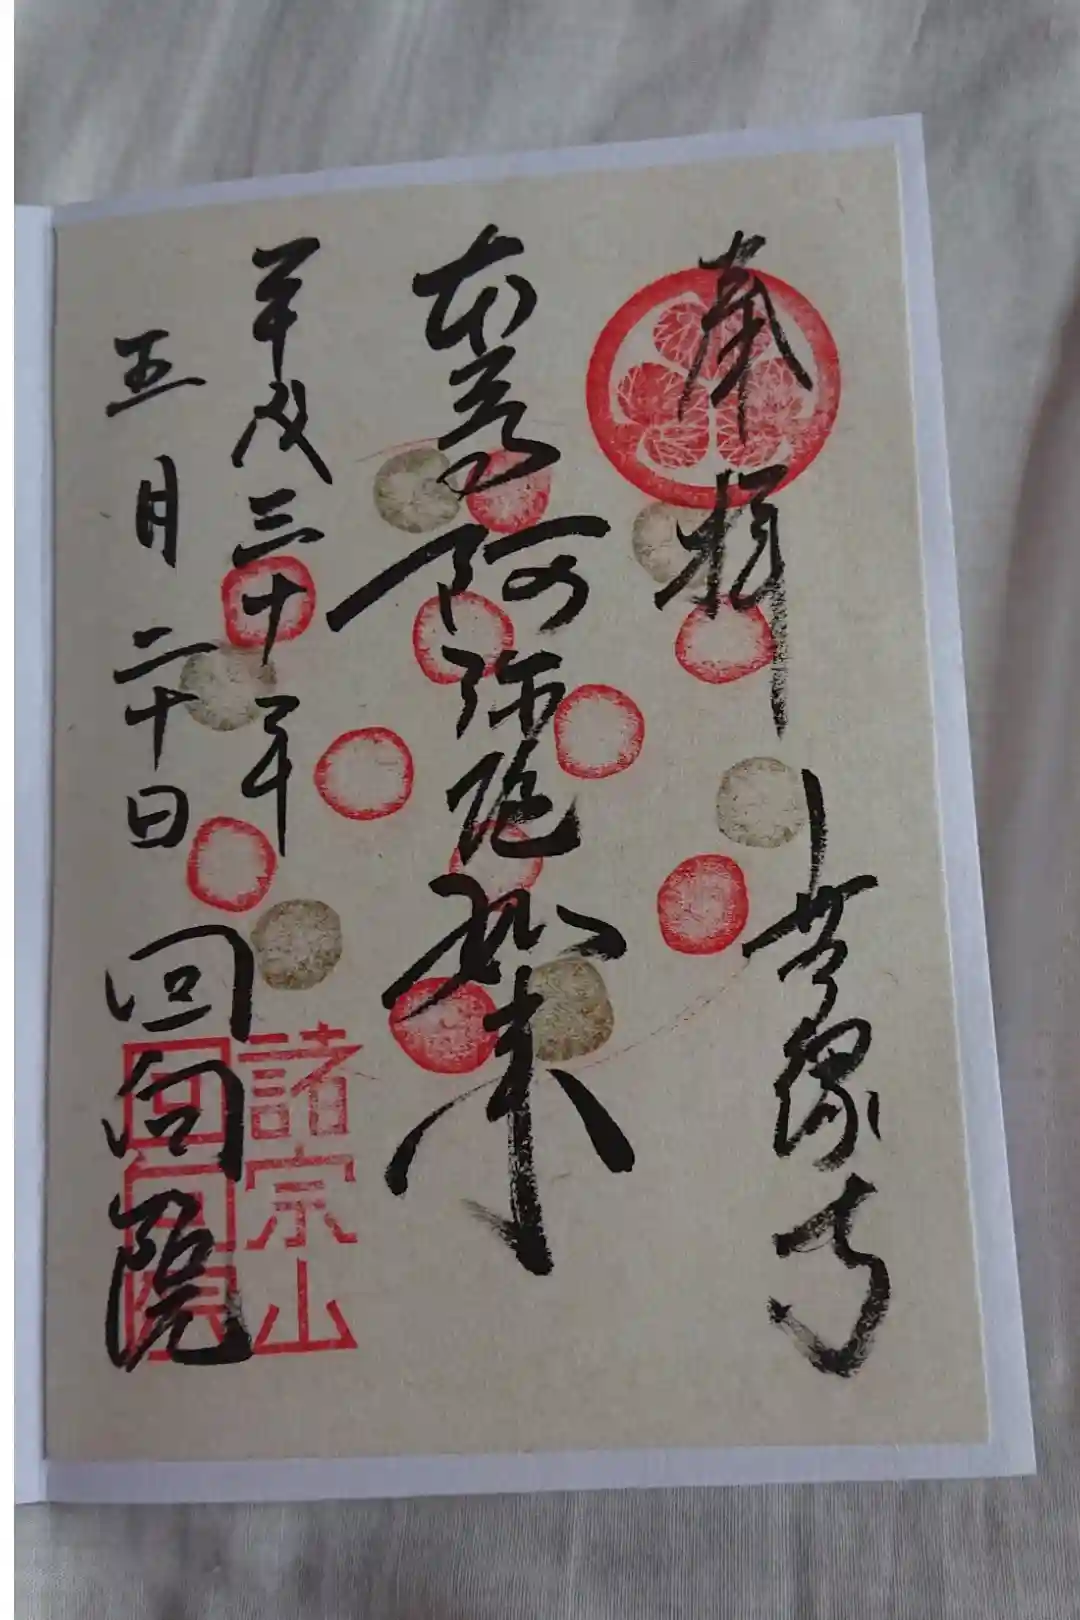 奉拝 無縁寺
本尊阿弥陀如来
平成三十年
五月二十日 回向院
諸宗山
回向院